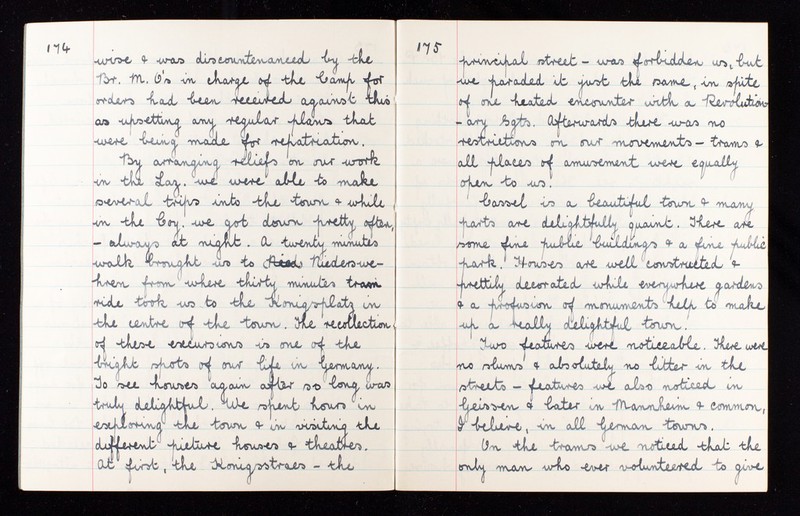 174
wise & was discountenanced by the
Br. M. O's in charge of the Camp for
orders had been received against this
as upsetting any regular plans that
were being made for repatriation.
By arranging reliefs on our work
in the Laz. we were able to make
several trips into the town & while
in the Coy. we got down pretty often,
- always at night. A twenty minutes
walk brought us to Niederswe-
hren from where thirty minutes tram
ride took us to the Konigsplatz in
the centre of the town. The recollection
of these excursions is one of the
bright spots of our life in Germany.
To see houses again after so long was
truly delightful. We spent hours in
exploring the town & in visiting the
different picture houses & theatres.
At first, the Konigsstraes - the
175
principal street - was forbidden us, but
we paraded it just the same, in spite
of one heated encounter with a Revolution
- ary Sgts. Afterwards there was no
restrictions on our movements - trams &
all places of amusement were equally
open to us.
Cassel is a beautiful town & many
parts are delightfully quaint. There are
some fine public buildings & a fine public
park. Houses are well constructed &
prettily decorated while everywhere gardens
& a profusion of monuments help to make
up a really delightful town.
Two features were noticeable. There were
no slums & absolutely no litter in the
streets - features we also noticed in
Geissen & later in Mannheim & common,
I believe, in all German towns.
On the trams we noticed that the
only man who ever volunteered to give